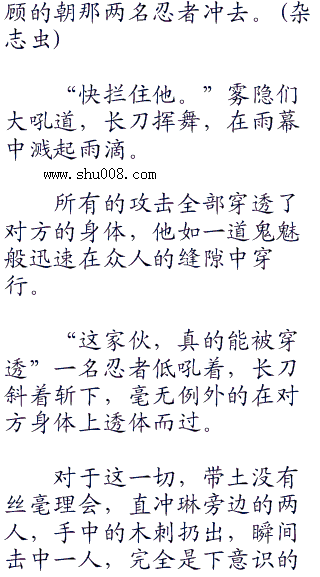 顾的朝那两名忍者冲去。(杂
志虫)
“快拦住他。”雾隐们
大吼道，长刀挥舞，在雨幕
中溅起雨滴。
www.shu008.com
所有的攻击全部穿透了
对方的身体，他如一道鬼魅
般迅速在众人的缝隙中穿
行。
“这家伙，真的能被穿
透”一名忍者低吼着，长刀
斜着斩下，毫无例外的在对
方身体上透体而过。
对于这一切，带土没有
丝毫理会，直冲琳旁边的两
人，手中的木刺扔出，瞬间
击中一人，完全是下意识的